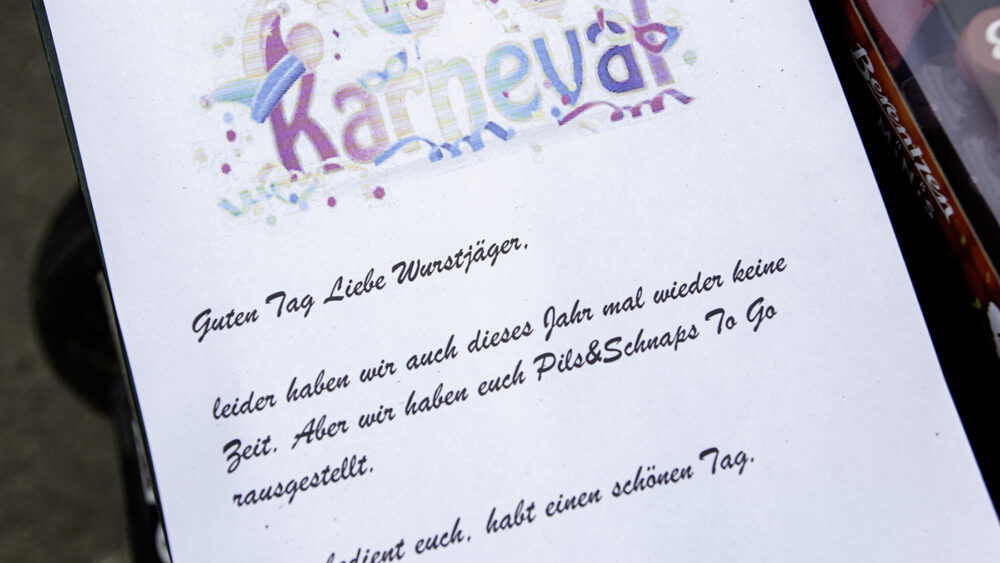 Karneval
Guten Tag Liebe Wurstjäger,
leider haben wir auch dieses Jahr mal wieder keine
Zeit. Aber wir haben euch Pils&Schnaps To Go
rausgestellt.
euch, habt einen schönen Tag.
Berentzen
MINIS